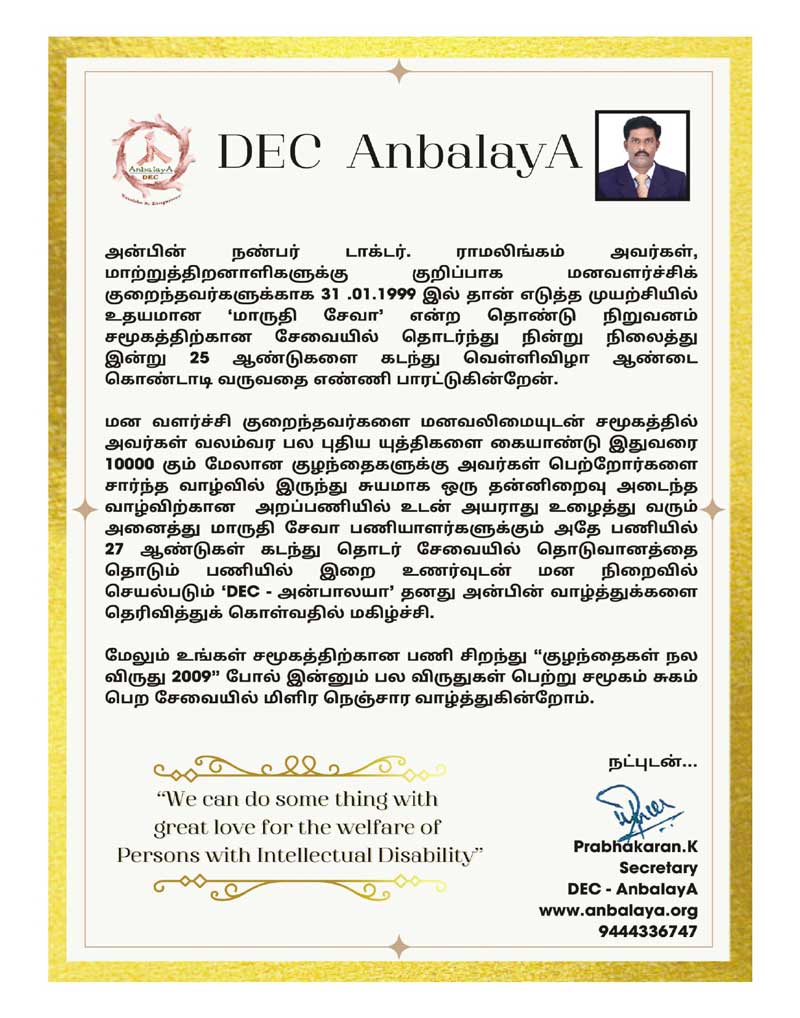 AnbalayA
DEC
DEC AnbalayA
அன்பின் நண்பர் டாக்டர். ராமலிங்கம் அவர்கள்,
மாற்றுத்திறனாளிகளுக்கு குறிப்பாக மனவளர்ச்சிக்
குறைந்தவர்களுக்காக 31 .01.1999 இல் தான் எடுத்த முயற்சியில்
உதயமான ‘மாருதி சேவா’ என்ற தொண்டு நிறுவனம்
சமூகத்திற்கான சேவையில் தொடர்ந்து நின்று நிலைத்து
இன்று 25 ஆண்டுகளை கடந்து வெள்ளிவிழா ஆண்டை
கொண்டாடி வருவதை எண்ணி பாரட்டுகின்றேன்.
மன வளர்ச்சி குறைந்தவர்களை மனவலிமையுடன் சமூகத்தில்
அவர்கள் வலம்வர பல புதிய யுத்திகளை கையாண்டு இதுவரை
10000 கும் மேலான குழந்தைகளுக்கு அவர்கள் பெற்றோர்களை
சார்ந்த வாழ்வில் இருந்து சுயமாக ஒரு தன்னிறைவு அடைந்த
வாழ்விற்கான அறப்பணியில் உடன் அயராது உழைத்து வரும்
அனைத்து மாருதி சேவா பணியாளர்களுக்கும் அதே பணியில்
27 ஆண்டுகள் கடந்து தொடர் சேவையில் தொடுவானத்தை
தொடும் பணியில் இறை உணர்வுடன் மன நிறைவில்
செயல்படும் ‘DEC - அன்பாலயா’ தனது அன்பின் வாழ்த்துக்களை
தெரிவித்துக் கொள்வதில் மகிழ்ச்சி.
மேலும் உங்கள் சமூகத்திற்கான பணி சிறந்து “குழந்தைகள் நல
விருது 2009” போல் இன்னும் பல விருதுகள் பெற்று சமூகம் சுகம்
பெற சேவையில் மிளிர நெஞ்சார வாழ்த்துகின்றோம்.
“We can do some thing with
great love for the welfare of
Persons with Intellectual Disability”
நட்புடன்...
Prabhakaran.K
Secretary
DEC - AnbalayA
www.anbalaya.org
9444336747